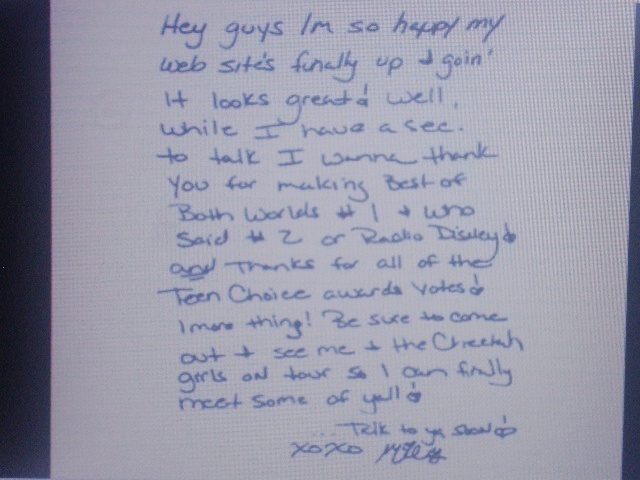 Hey guys Im so happy my
web site's finally up + goin'
It looks great! Well,
while I have a sec.
to talk I wanna thank
you for making Best of
Both Worlds #1 + who
said #2 or Radio Disney!
and Thanks for all of the
Teen Choice awards votes!
1 more thing! Be sure to come
out + see me + the Cheetah
girls on tour so I can finally
meet some of yall!
... Talk to ya soon!
xoxo Miley